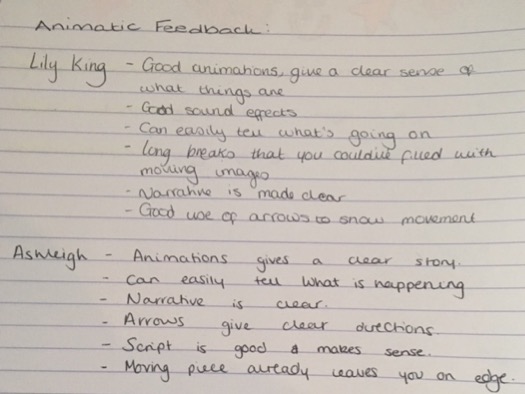 Animatic Feedback:
Lily King - Good animations, give a clear sense of
what things are
- Good sound effects
- Can easily tell what's going on
- long breaks that you could've filled with
moving images
- Narrative is made clear
- Good use of arrows to show movement
Ashleigh - Animations gives a clear story.
- Can easily tell what is happening
- Narrative is clear.
- Arrows give clear directions.
- Script is good & makes sense.
- Moving piece already leaves you on edge.